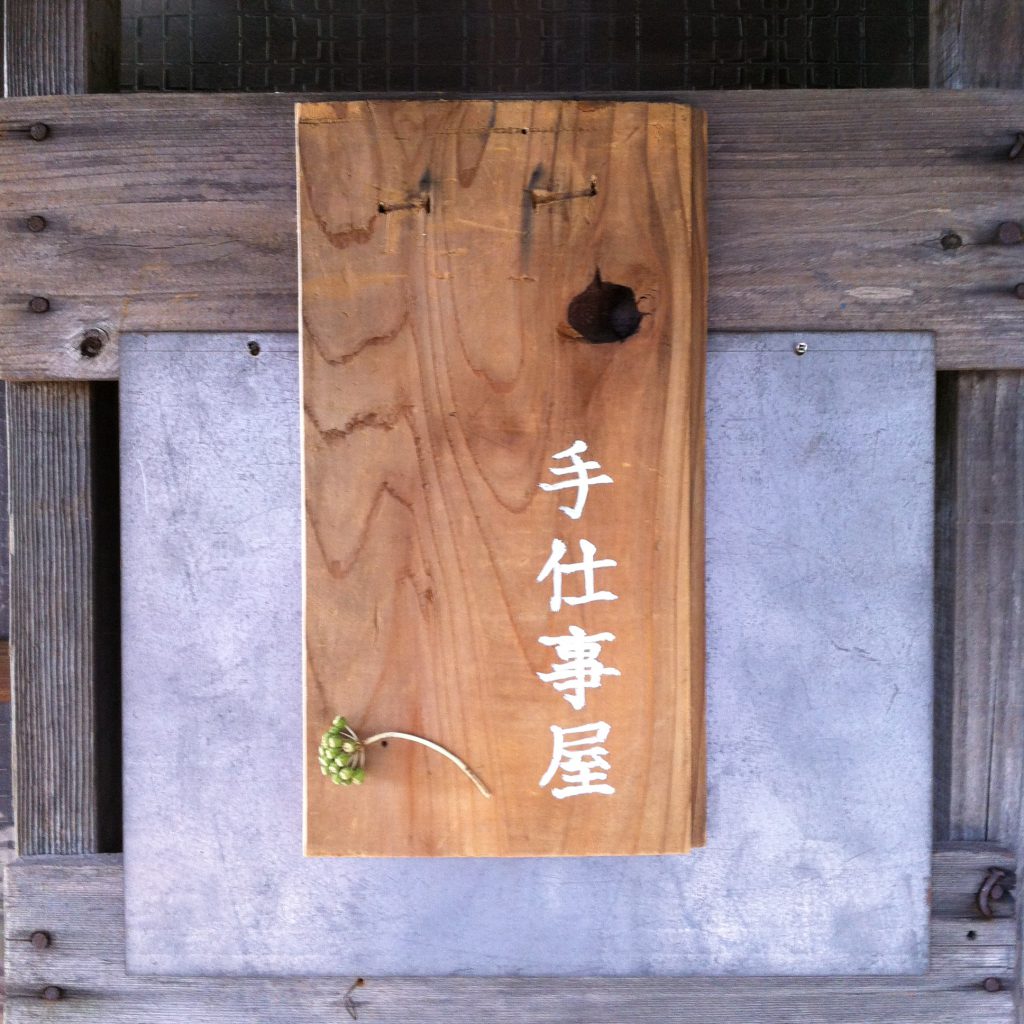 手仕事屋